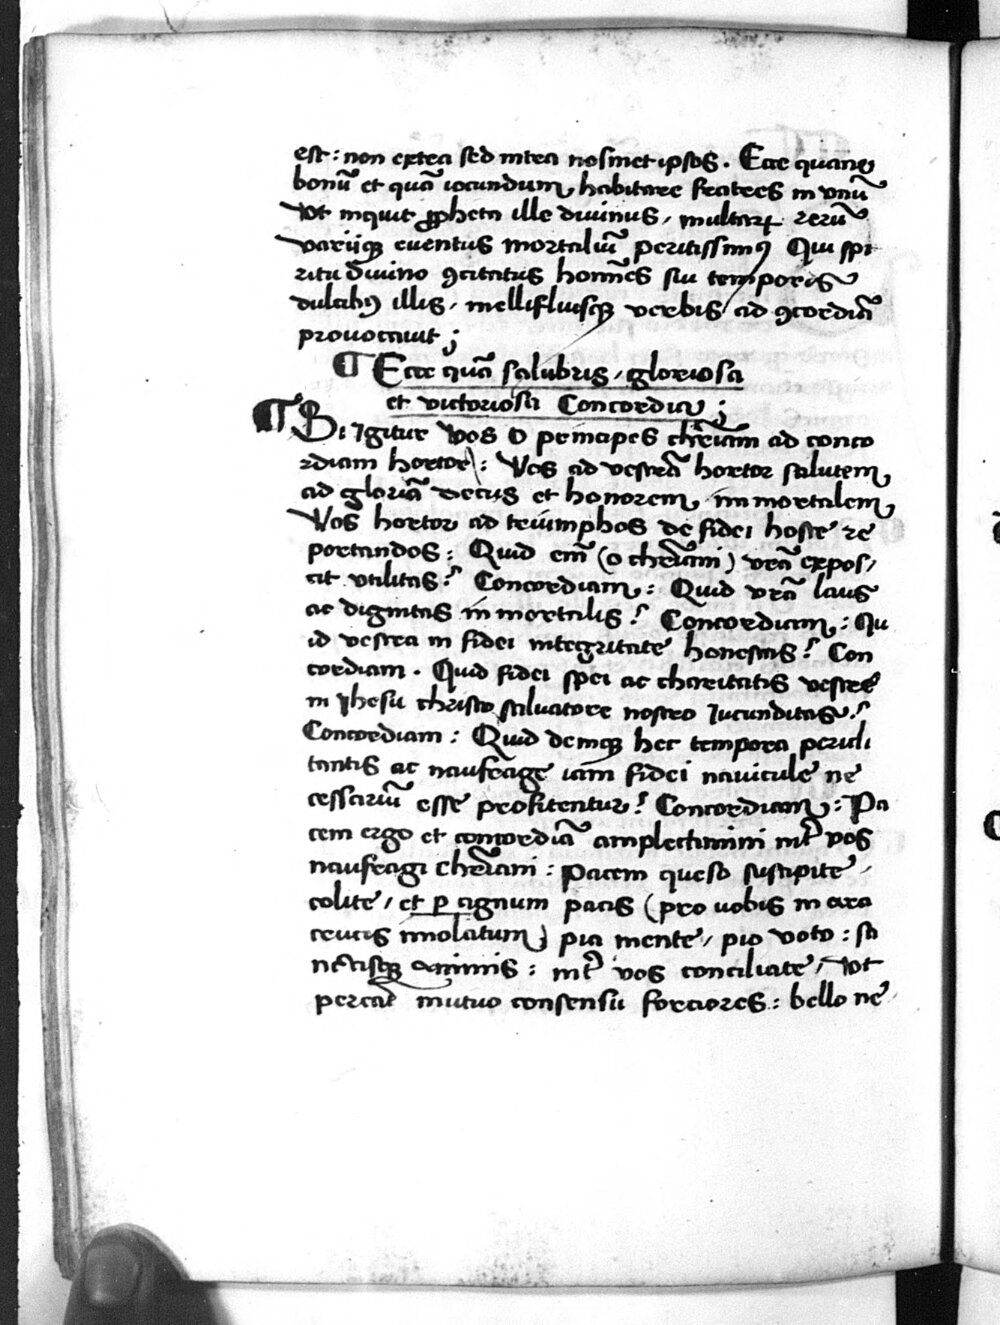 est : non extra sed intra nosmet ipsos . Ecce quam
bonū et quā iocundum habitare fratres in vnū
Vt inquit ꝓpheta ille diuinus / multarꝝ rerū
varijsqꝫ euentus mortaliū peritissimꝰ Qui spi
ritu diuino ꝯcitatus homīes sui temporis
dulcibꝰ illis / mellifluisqꝫ verbis ad ꝯcordiā
prouocauit ;
¶ Ecce quā salubris / gloriosa
et victoriosa Concordia ;
¶ Bi Igitur vos o principes chr̄iani ad conco
rdiam hortor : Vos ad vestrā hortor salutem
ad gloriā decus et honorem immortalem
Vos hortor ad triumphos de fidei hoste re
portandos : Quid em̄ (o chr̄iani) vr̄a expos/
cit vtilitas ? Concordiam : Quid vr̄a laus
ac dignitas immortalis ? Concordiam : Qu
id vestra in fidei integritate honestas ? Con
cordiam . Quid fidei spei ac charitatis vestre
in yhesu christo saluatore nostro Iucunditas ?
Concordiam : Quid deniqꝫ hec tempora pericli
tantis ac naufrage iam fidei nauicule ne
cessariū esse profitentur ? Concordiam : Pa
cem ergo et concordiā amplectimini int̄ vos
naufragi chr̄iani : Pacem queso suscipite /
colite / et p agnum pacis (pro uobis in ara
crucis imolatum) pia mente / pio voto : sa
nctisqꝫ animis : int̄ vos conciliate / Vt
percat̄ mutuo consensu forciores : bello ne